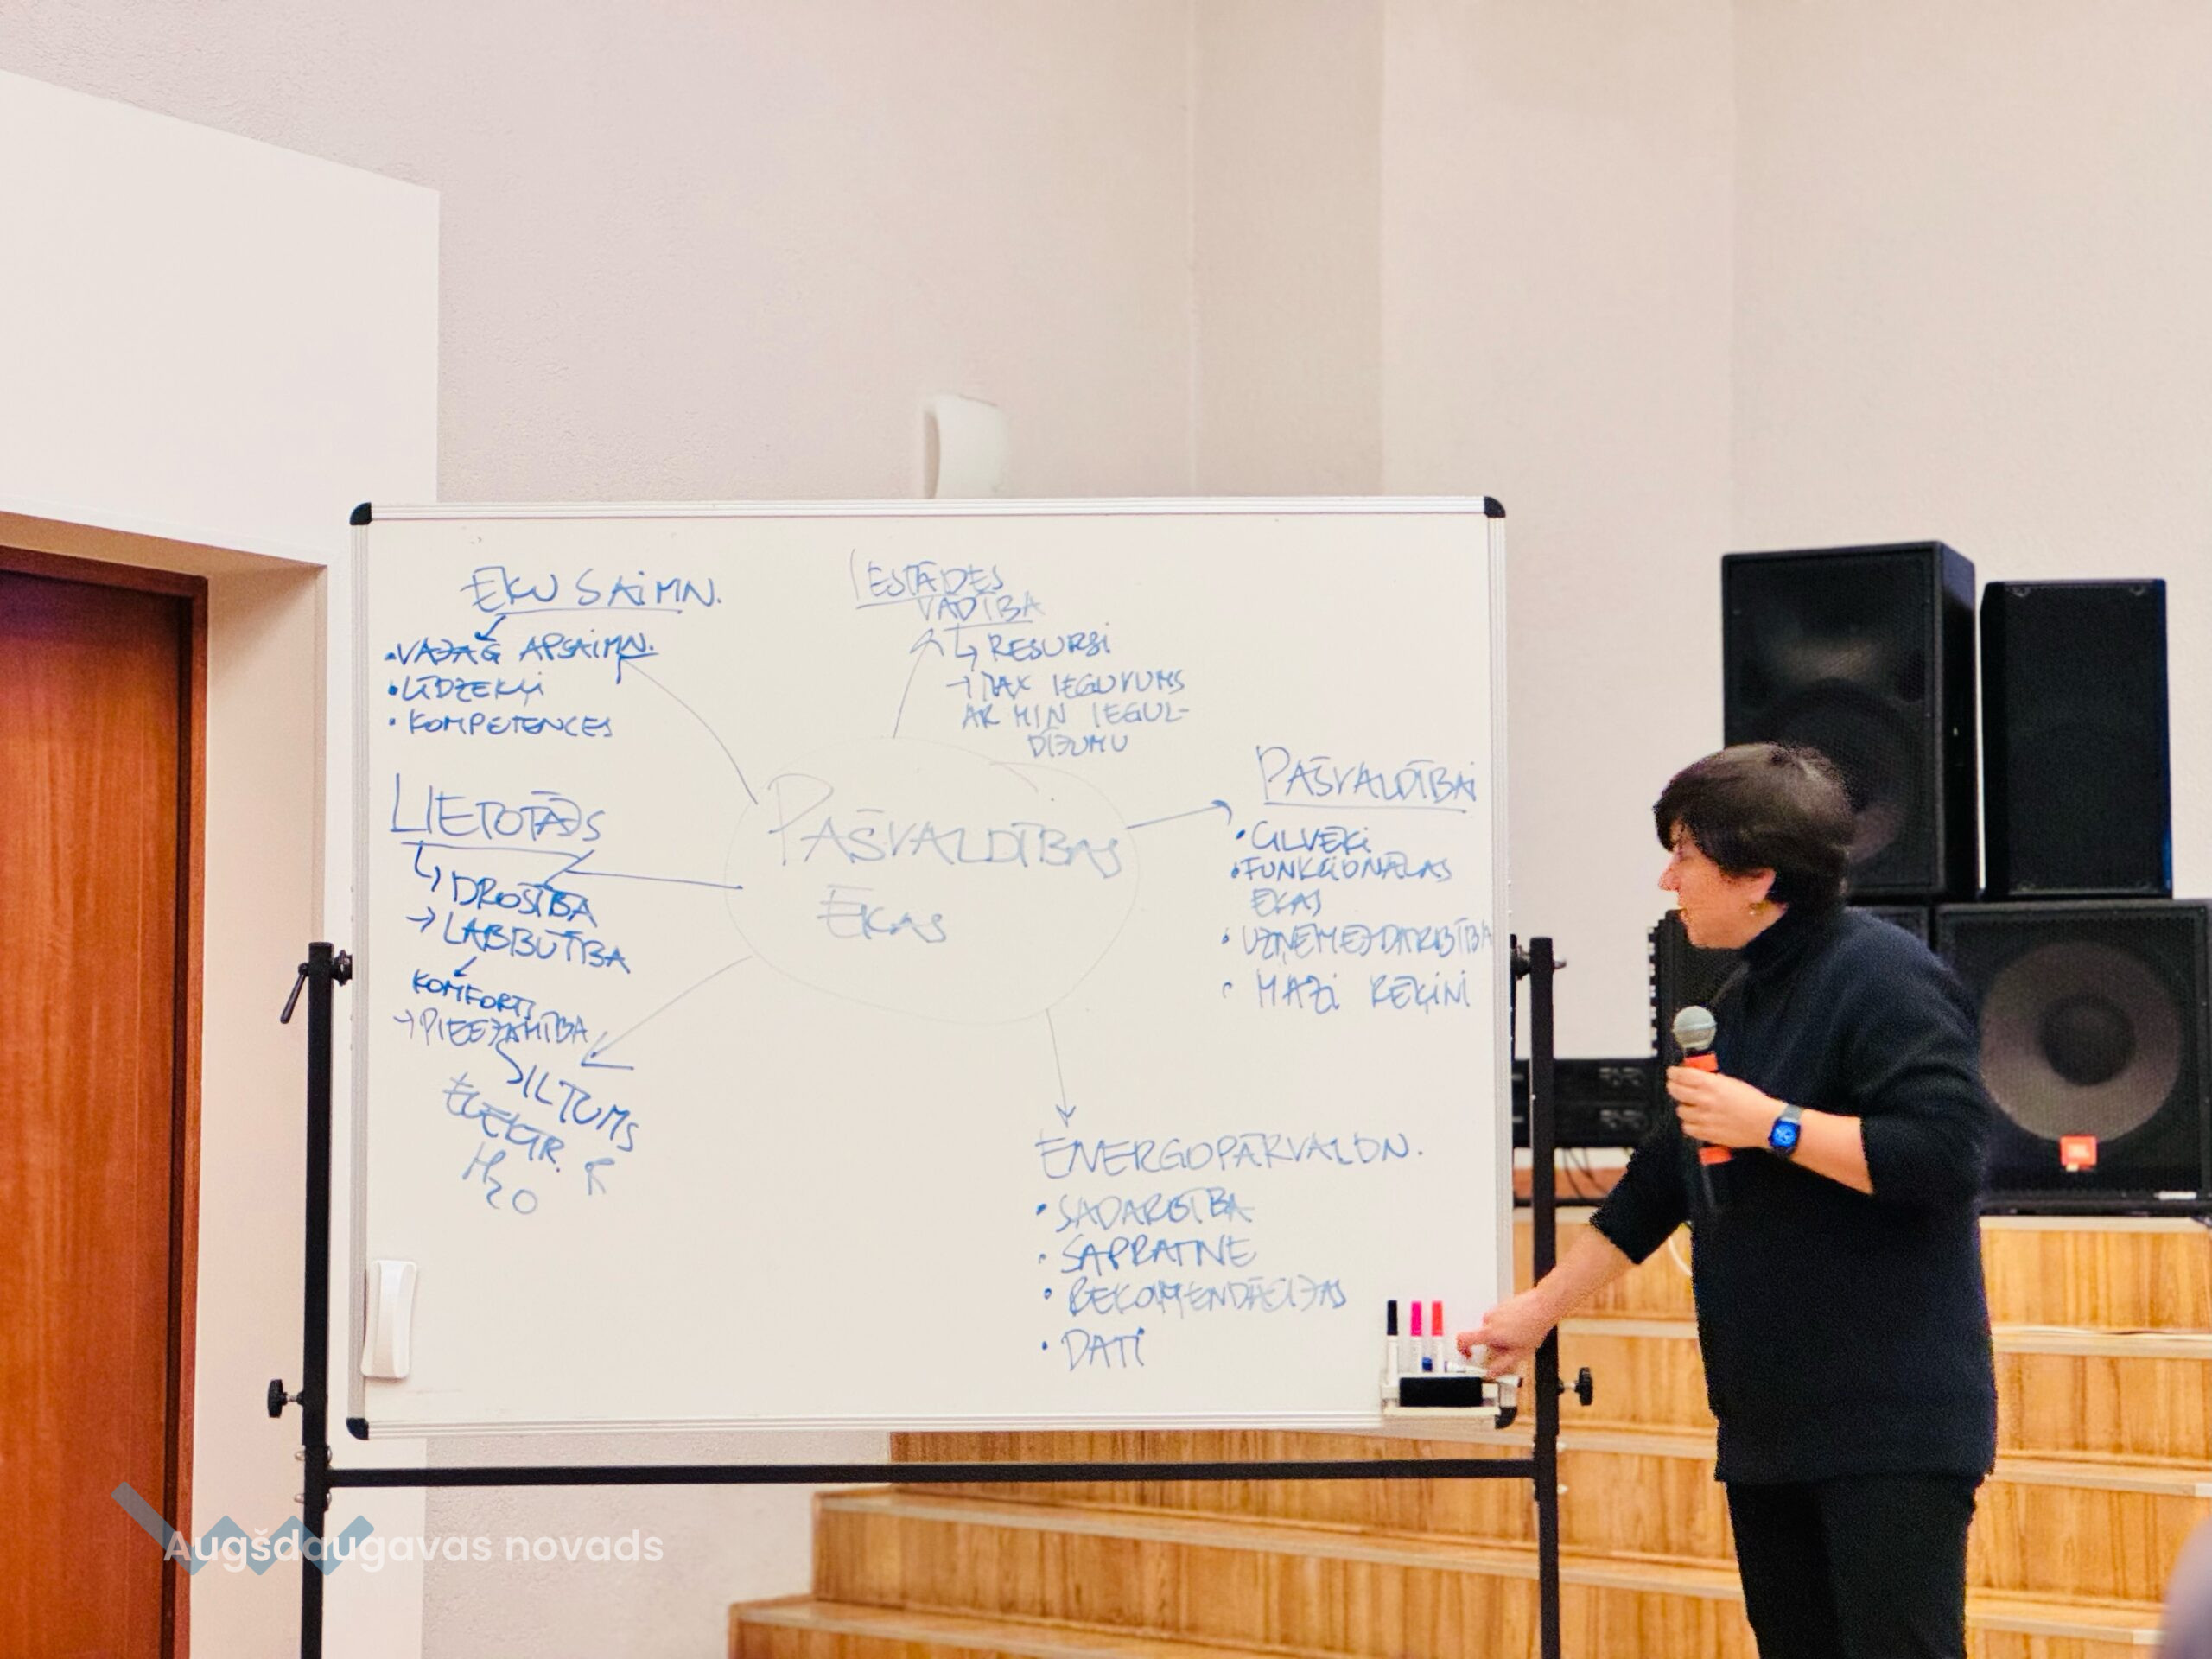 ĒKU SAIMN.
• VAJAG APSAIMN.
• LĪDZEKĻI
• KOMPETENCES
IESTĀDES
VADĪBA
↳ RESURSI
→ MAX IEGUVUMS
AR MIN IEGUL-
DĪJUMU
LIETOTĀJS
↳ DROŠĪBA
→ LABBŪTĪBA
KOMFORTS
→ PIEEJAMĪBA
SILTUMS
ELEKTR.
H2O
PAŠVALDĪBAS
ĒKAS
PAŠVALDĪBAI
• CILVĒKI
• FUNKCIONĀLAS
ĒKAS
• UZŅĒMĒJDARBĪBA
• MAZI RĒĶINI
ENERGOPĀRVALDN.
• SADARBĪBA
• SAPRATNE
• REKOMENDĀCIJAS
• DATI
Augšdaugavas novads